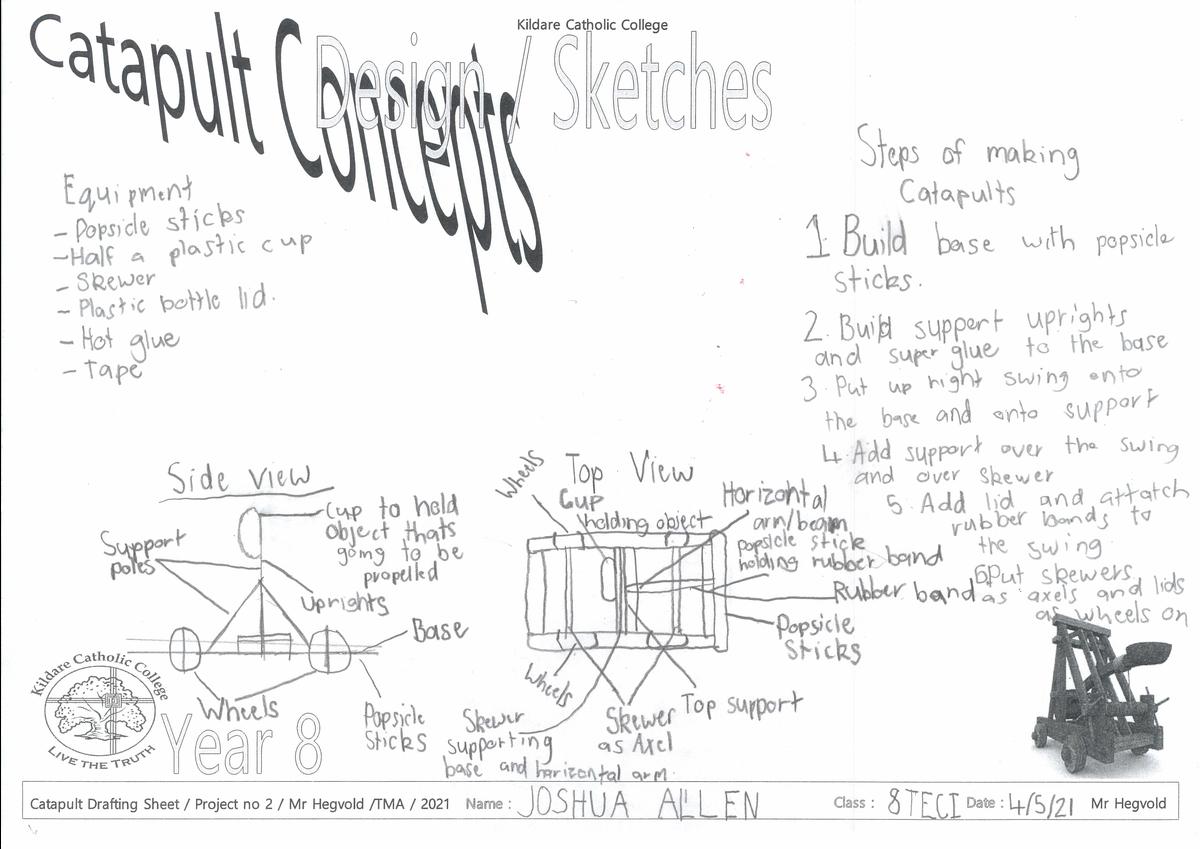 Kildare Catholic College
Catapult Concepts
Design / Sketches
Equipment
- Popsicle sticks
- Half a plastic cup
- Skewer
- Plastic bottle lid.
- Hot glue
- Tape
Steps of making
Catapults
1. Build base with popsicle
sticks.
2. Build support uprights
and super glue to the base
3. Put up right swing onto
the base and onto support
4. Add support over the swing
and over skewer
5. Add lid and attatch
rubber bands to
the swing.
6 Put skewers
as axels and lids
as wheels on
Side View
Cup to hold
object thats
going to be
propelled
Support
poles
Uprights
Base
Wheels
Popsicle
Sticks
Top View
Wheels
Cup
holding object
Horizontal
arm/beam
popsicle stick
holding rubber band
Rubber band
Popsicle
Sticks
Wheels
Skewer
supporting
base and horizontal arm.
Skewer
as Axel
Top support
Kildare Catholic College
LIVE THE TRUTH
Year 8
Catapult Drafting Sheet / Project no 2 / Mr Hegvold /TMA / 2021 Name : JOSHUA ALLEN Class : 8TEC1 Date : 4/5/21 Mr Hegvold